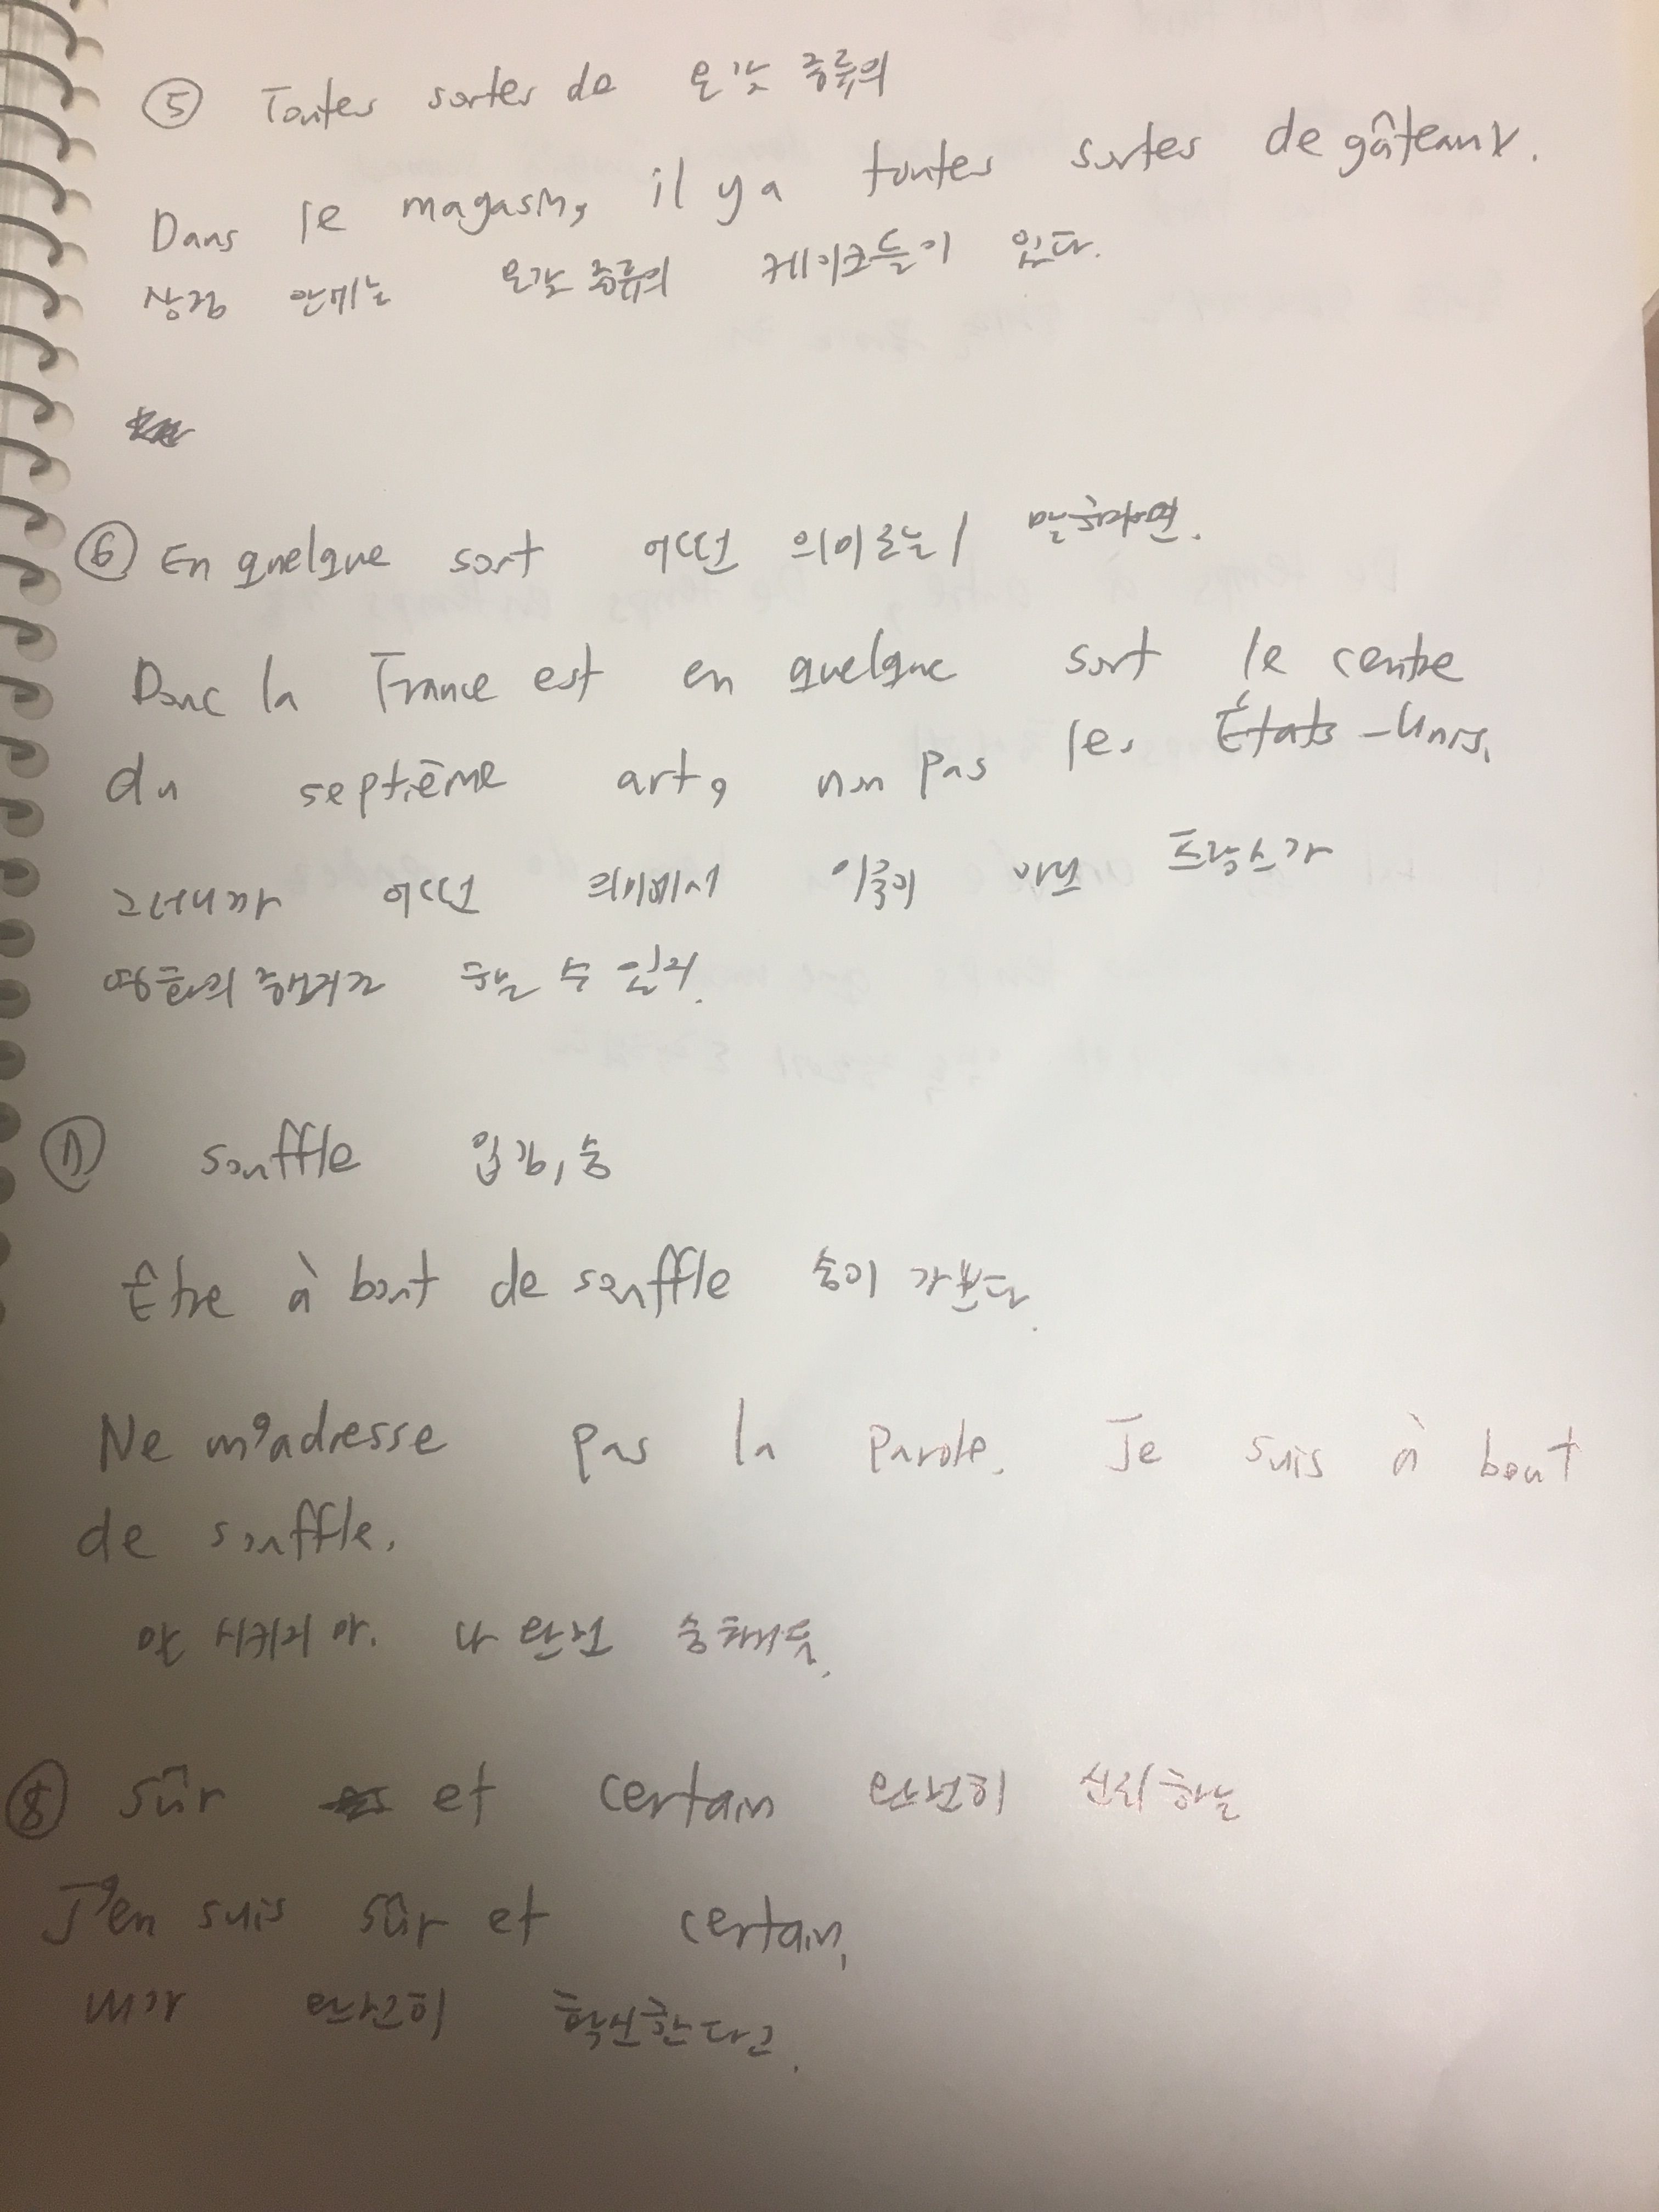 ⑤ Toutes sortes de 온갖 종류의
Dans le magasin, il y a toutes sortes de gâteaux.
상점 안에는 온갖 종류의 케이크들이 있다.
⑥ En quelque sort 어떤 의미로는 / 말하자면.
Donc la France est en quelque sort le centre
du septième art, non pas les États-Unis.
그러니까 어떤 의미에서 미국이 아닌 프랑스가
영화의 수 있지.
⑦ souffle 입김, 숨
Être à bout de souffle 숨이 가쁘다.
Ne m'adresse pas la parole. Je suis à bout
de souffle.
말 시키지 마. 나 완전 숨차거든.
⑧ sûr et certain 완전히 신뢰하는
J'en suis sûr et certain.
내가 완전히 확신한다고.